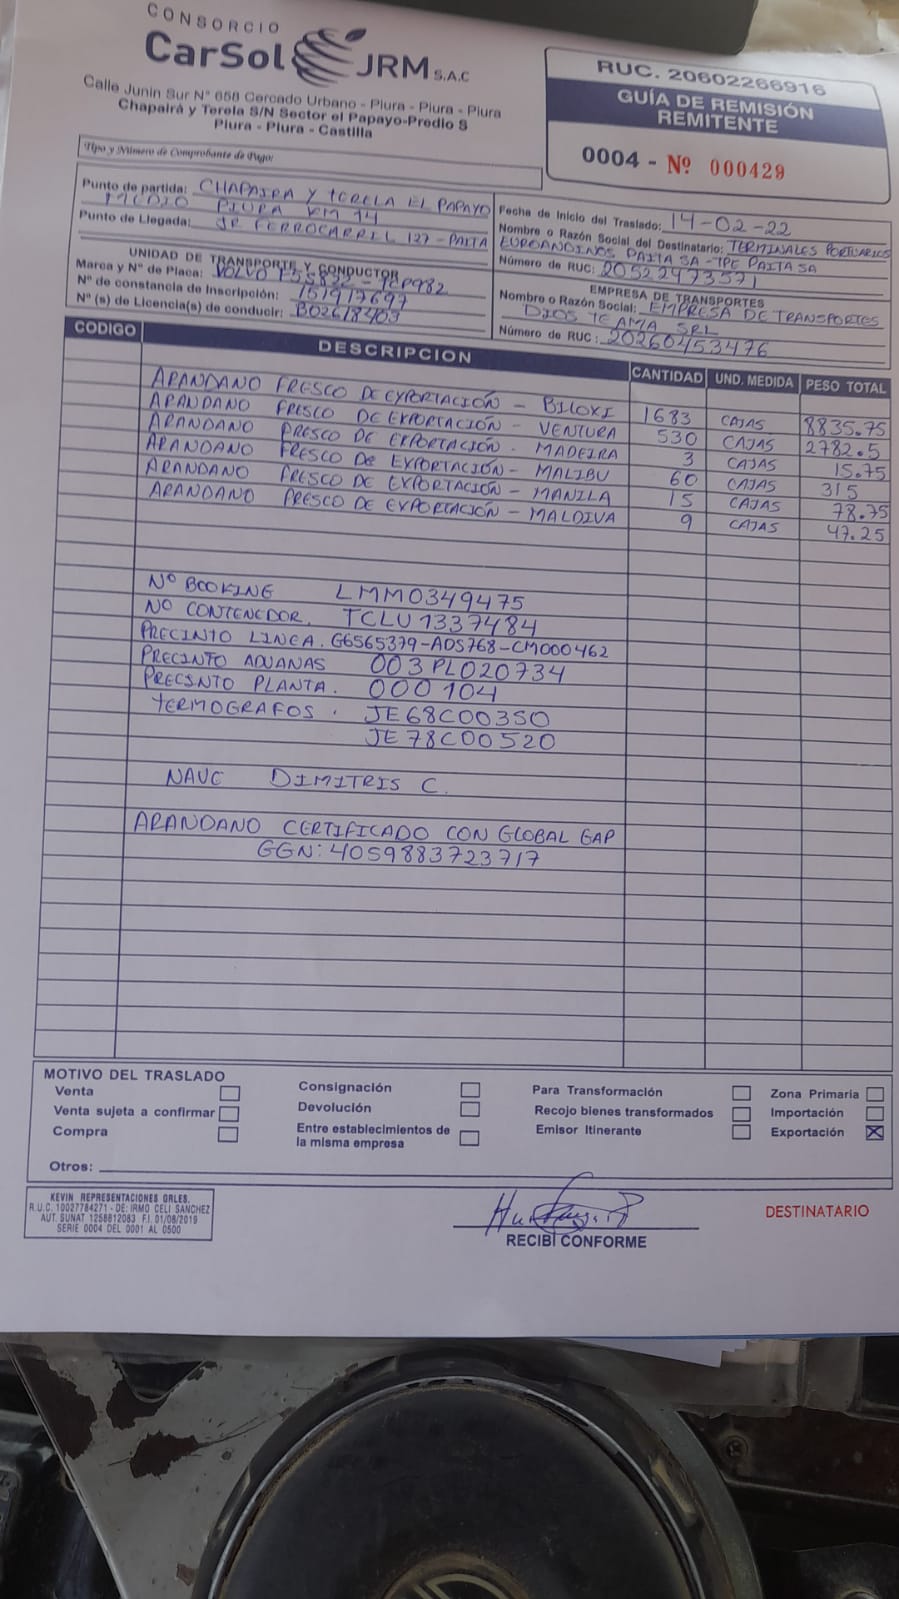 CONSORCIO
CarSol JRM S.A.C
Calle Junin Sur N° 658 Cercado Urbano - Piura - Piura - Piura
Chapairá y Terela S/N Sector el Papayo-Predio S
Piura - Piura - Castilla
RUC. 20602266916
GUÍA DE REMISIÓN
REMITENTE
0004 - Nº 000429
Tipo y Número de Comprobante de Pago:
Punto de partida: CHAPAIRA Y TERELA EL PAPAYO
PIURA KM 14
Punto de Llegada: JR FERROCARRIL 127 - PAITA
Fecha de Inicio del Traslado: 14-02-22
Nombre o Razón Social del Destinatario: TERMINALES PORTUARIOS
EUROANDINOS PAITA SA - TPE PAITA SA
Número de RUC: 20522473571
UNIDAD DE TRANSPORTE Y CONDUCTOR
Marca y Nº de Placa: VOLVO
Nº de constancia de Inscripción: 151917697
Nº (s) de Licencia(s) de conducir: B02618403
EMPRESA DE TRANSPORTES
Nombre o Razón Social: EMPRESA DE TRANSPORTES
DIOS TE AMA SRL
Número de RUC: 20260453476
CODIGO DESCRIPCION CANTIDAD UND. MEDIDA PESO TOTAL
ARANDANO FRESCO DE EXPORTACIÓN - BILOXI 1683 CAJAS 8835.75
ARANDANO FRESCO DE EXPORTACIÓN - VENTURA 530 CAJAS 2782.5
ARANDANO FRESCO DE EXPORTACIÓN - MADEIRA 3 CAJAS 15.75
ARANDANO FRESCO DE EXPORTACIÓN - MALIBU 60 CAJAS 315
ARANDANO FRESCO DE EXPORTACIÓN - MANILA 15 CAJAS 78.75
ARANDANO FRESCO DE EXPORTACIÓN - MALDIVA 9 CAJAS 47.25
Nº BOOKING LMM0349475
NO CONTENEDOR. TCLU1337484
PRECINTO LINEA. G6565379-ADS768-CM000462
PRECINTO ADUANAS 003PL020734
PRECINTO PLANTA. 000104
TERMOGRAFOS. JE68C00350
JE78C00520
NAVE DIMITRIS C.
ARANDANO CERTIFICADO CON GLOBAL GAP
GGN: 4059883723717
MOTIVO DEL TRASLADO
Venta Consignación Para Transformación Zona Primaria
Venta sujeta a confirmar Devolución Recojo bienes transformados Importación
Compra Entre establecimientos de la misma empresa Emisor Itinerante Exportación X
Otros:
KEVIN REPRESENTACIONES ORLES.
R.U.C. 10027784271 - DE: IRMO CELI SANCHEZ
AUT. SUNAT 1258812083 F.I. 01/08/2019
SERIE 0004 DEL 0001 AL 0500
RECIBÍ CONFORME
DESTINATARIO